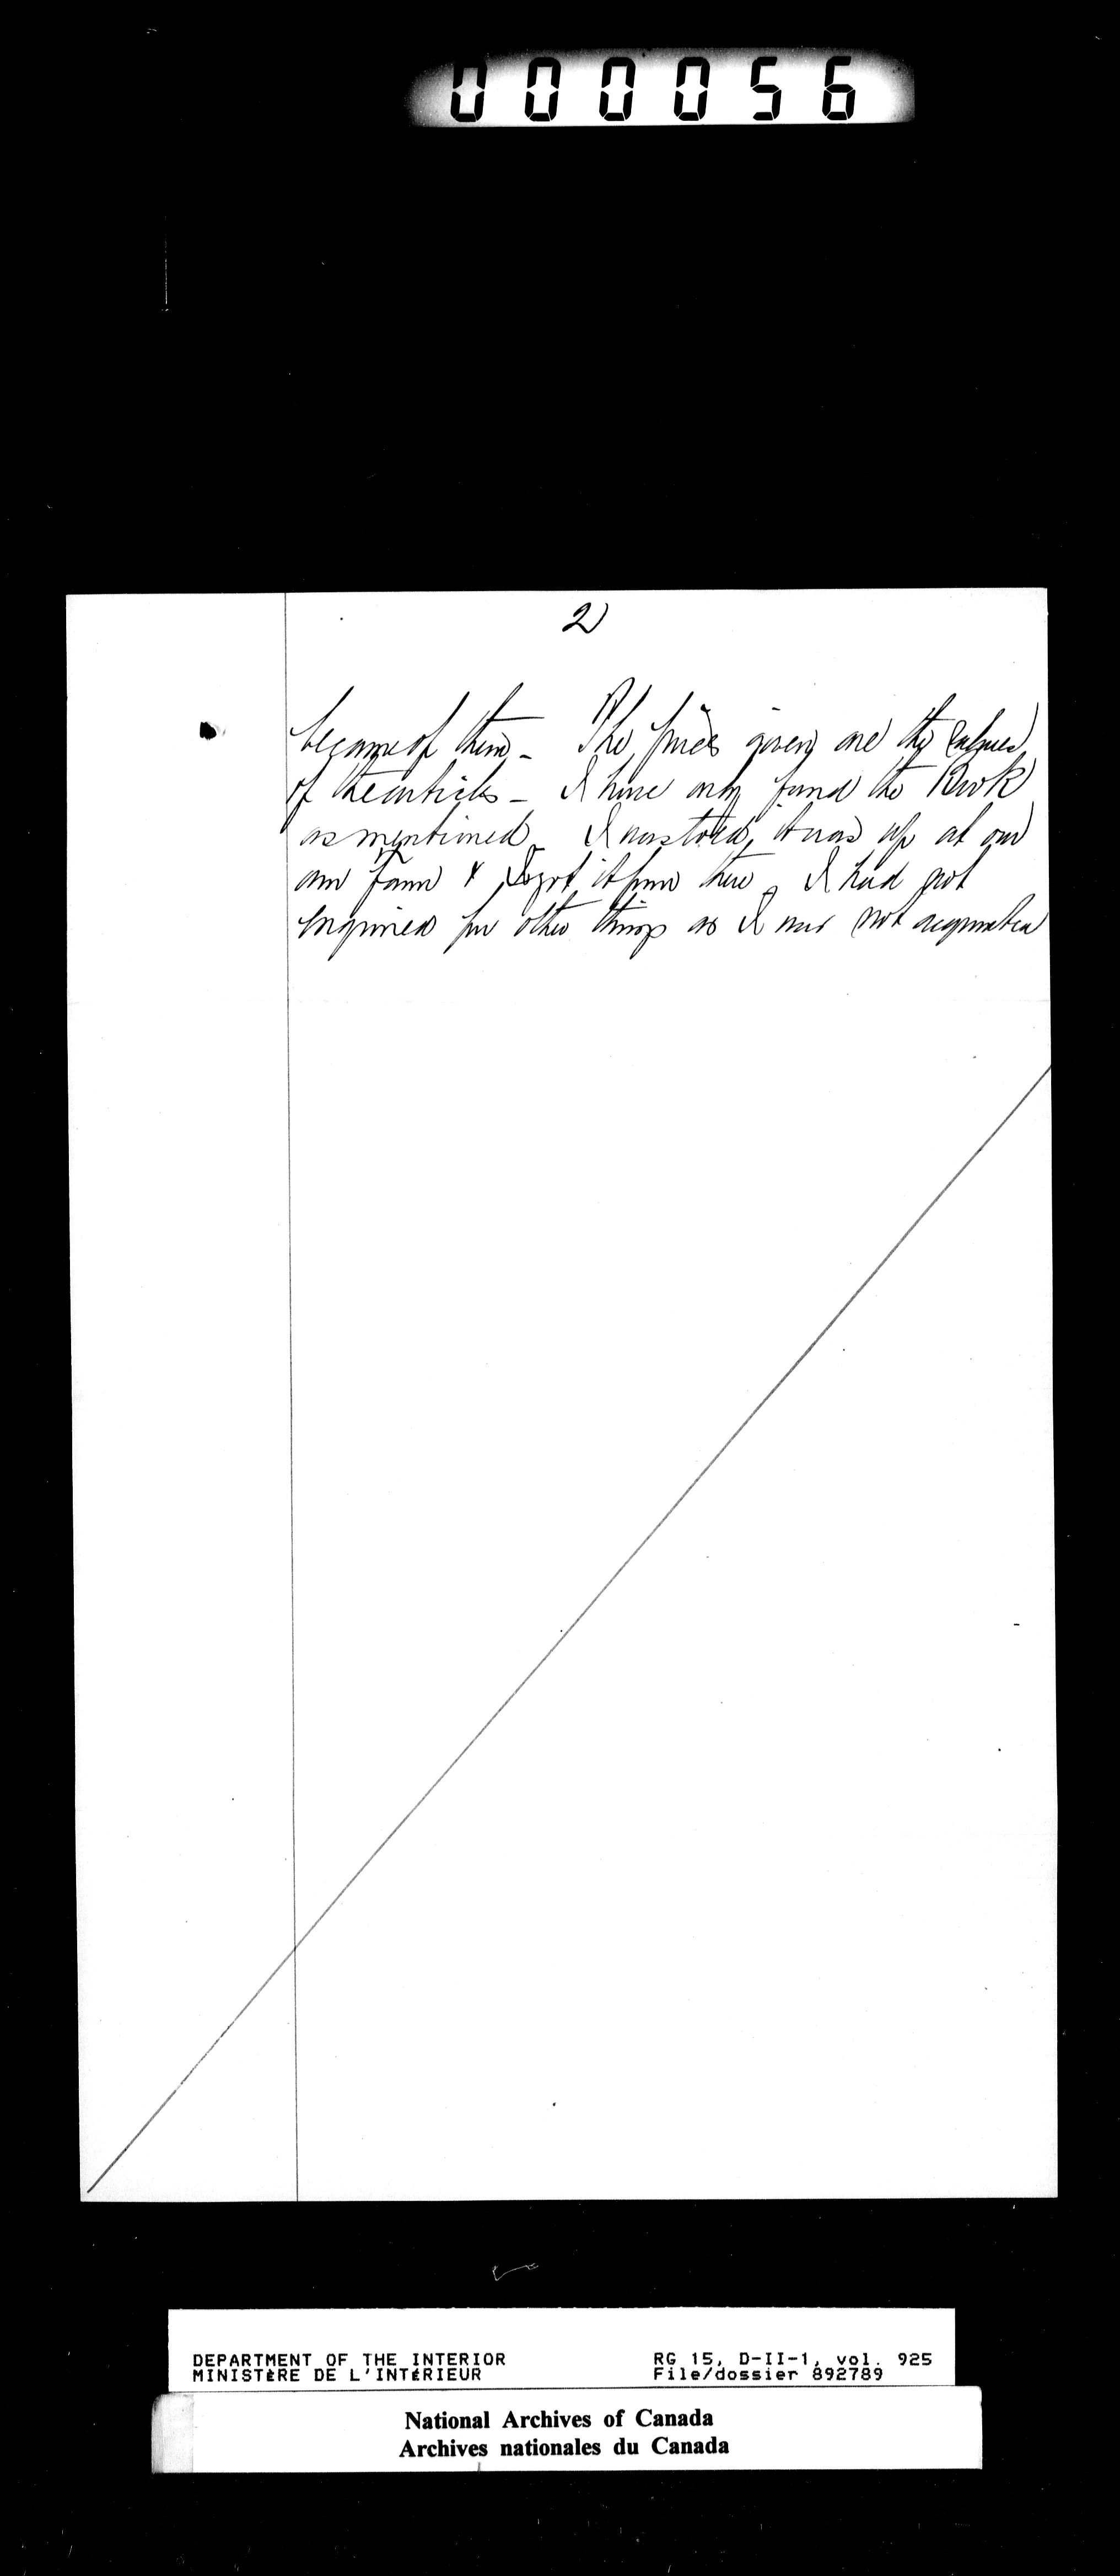 000056
2
became of them - The prices given are the values
of the articles - I have only found the Book
as mentioned. I was told it was up at our
own farm & I got it from there. I had not
enquired for other things as I was not acquainted
DEPARTMENT OF THE INTERIOR RG 15, D-II-1, vol. 925
MINISTÈRE DE L'INTÉRIEUR File/dossier 892789
National Archives of Canada
Archives nationales du Canada